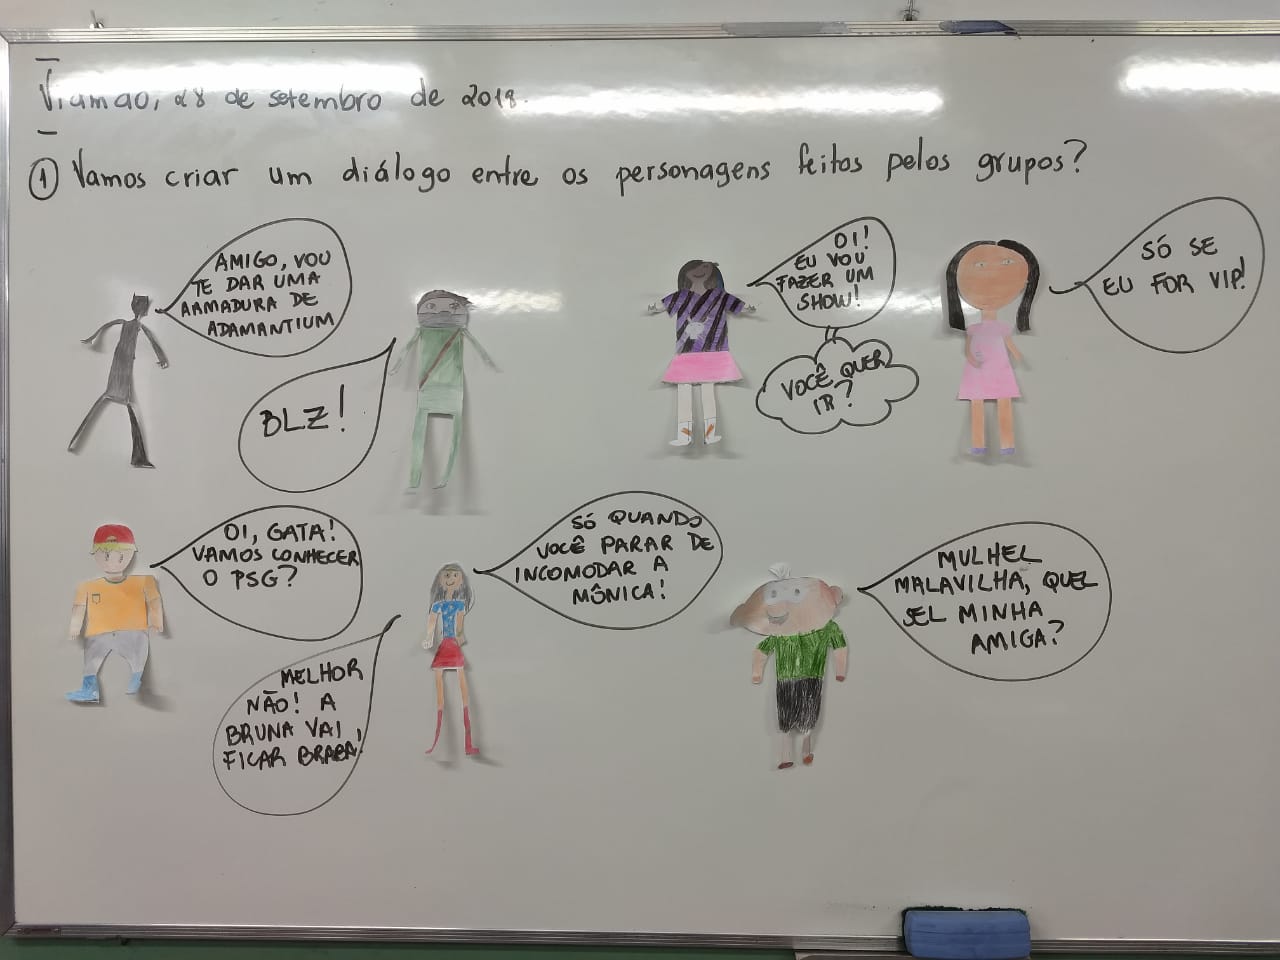 Viamão, 28 de setembro de 2018.
① Vamos criar um diálogo entre os personagens feitos pelos grupos?
AMIGO, VOU
TE DAR UMA
ARMADURA DE
ADAMANTIUM
BLZ!
OI!
EU VOU
FAZER UM
SHOW!
VOCÊ QUER
IR?
SÓ SE
EU FOR VIP!
OI, GATA!
VAMOS CONHECER
O PSG?
MELHOR
NÃO! A
BRUNA VAI
FICAR BRABA!
SÓ QUANDO
VOCÊ PARAR DE
INCOMODAR A
MÔNICA!
MULHEL
MALAVILHA, QUEL
SEL MINHA
AMIGA?